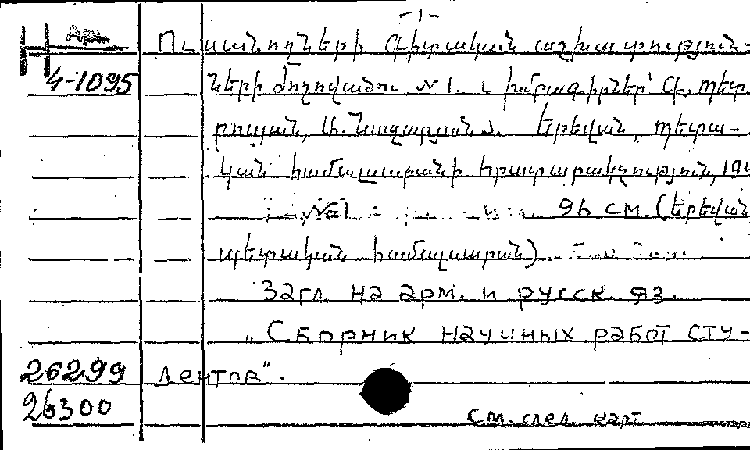 -1-
H Арм
4-1095
Ուսանողների Գիտական աշխատություն-
ների ժողովածու №1. խմբագիրներ՝ Գ. Պետ
րոսյան, Ա. Նազարյան. Երևան, պետա-
կան համալսարանի հրատարակչություն, 194
№1 96 см. (Երևանի
պետական համալսարան).
Загл. на арм. и русск. яз.
„Сборник научных работ сту-
дентов".
26299
26300
См. след. карт